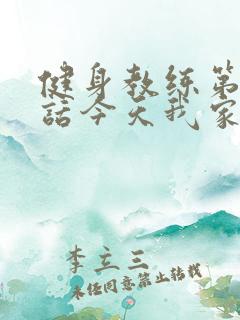 健身教练第
話今天我家
李立三
未经同意禁止转载